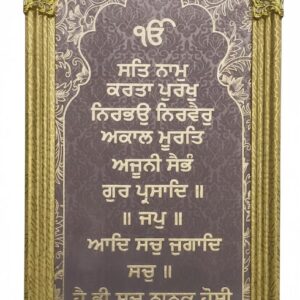 ੴ
ਸਤਿ ਨਾਮੁ
ਕਰਤਾ ਪੁਰਖੁ
ਨਿਰਭਉ ਨਿਰਵੈਰੁ
ਅਕਾਲ ਮੂਰਤਿ
ਅਜੂਨੀ ਸੈਭੰ
ਗੁਰ ਪ੍ਰਸਾਦਿ ॥
॥ ਜਪੁ ॥
ਆਦਿ ਸਚੁ ਜੁਗਾਦਿ
ਸਚੁ ॥
ਹੈ ਭੀ ਸਚੁ ਨਾਨਕ ਹੋਸੀ